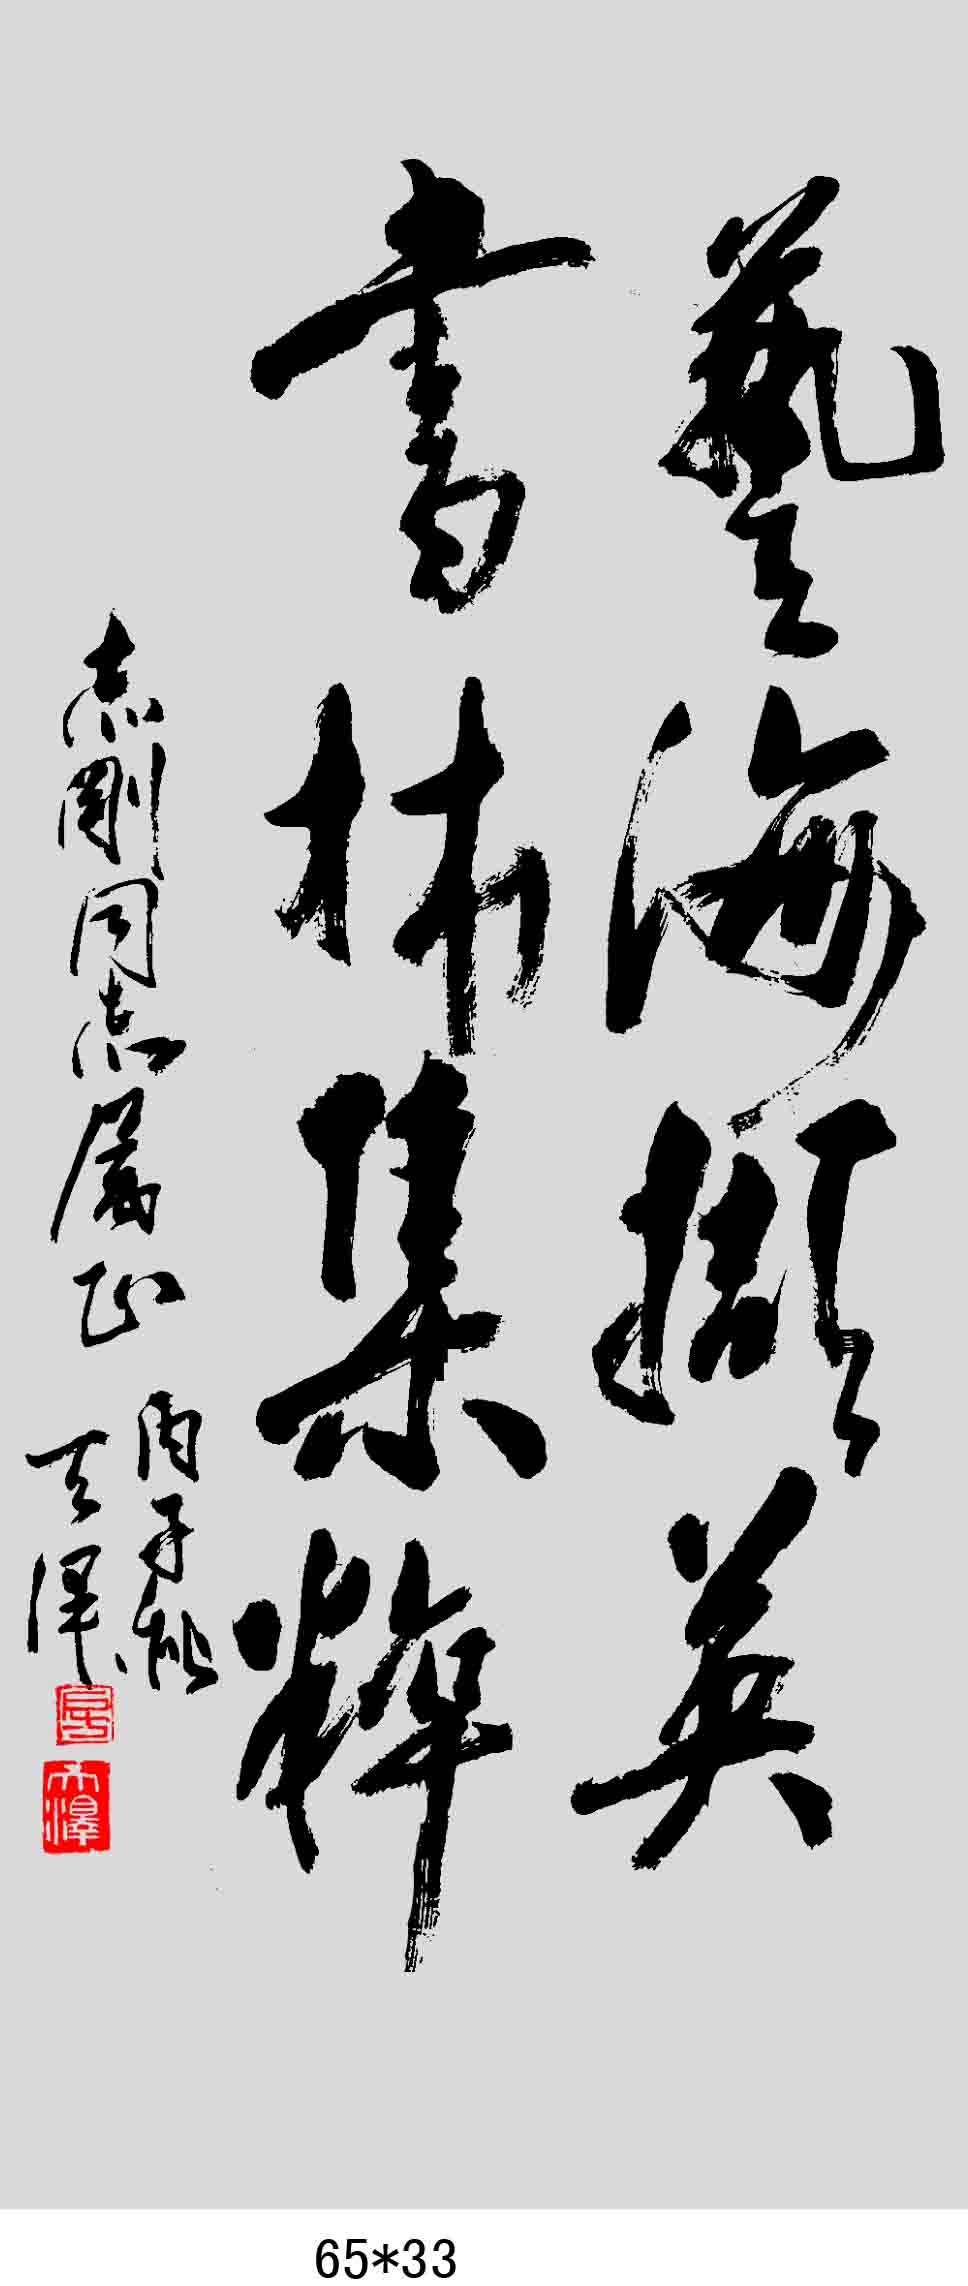 藝海擷英
書林集粹
志剛同志屬正
丙子秋
天澤
天澤
65*33